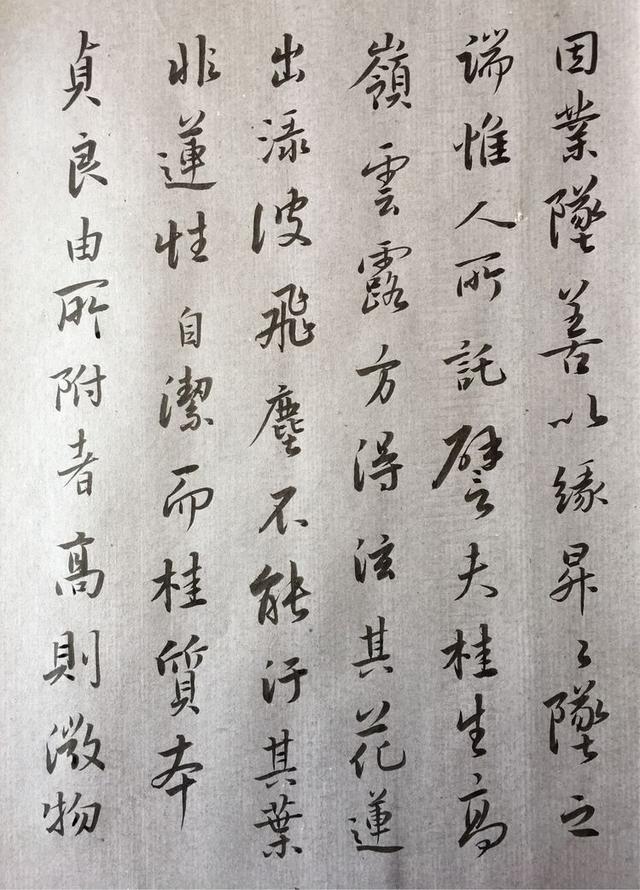 因業墜善以緣昇〻墜之
端惟人所託譬夫桂生高
嶺雲露方得泫其花蓮
出淥波飛塵不能汙其葉
非蓮性自潔而桂質本
貞良由所附者高則微物